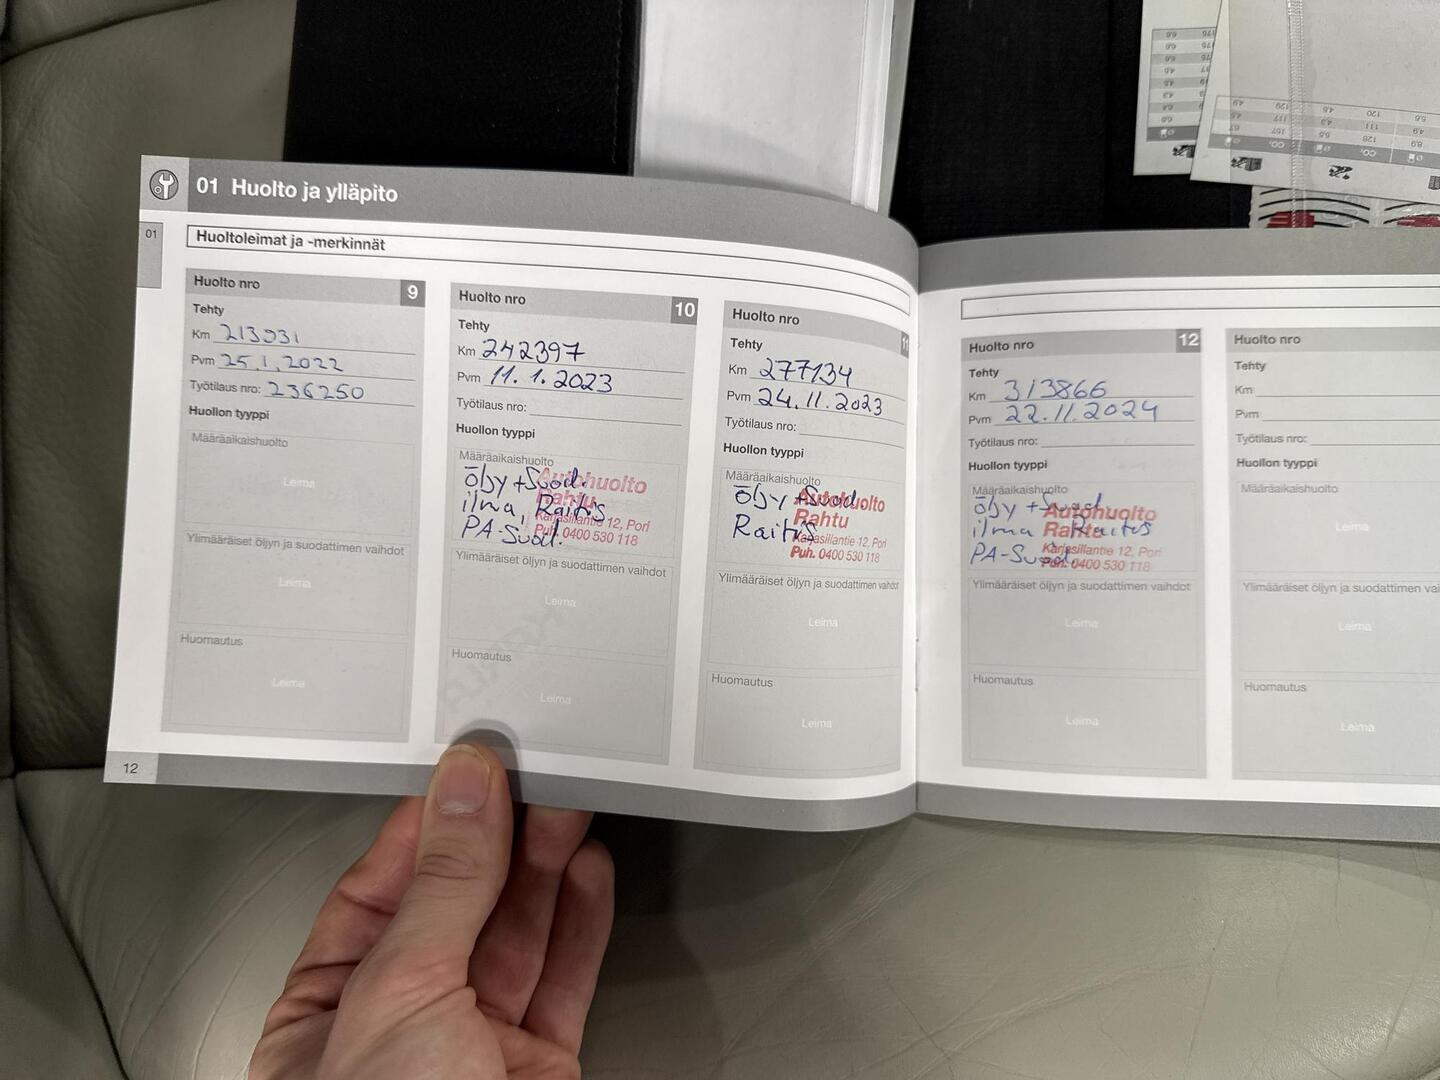 01 Huolto ja ylläpito
01
Huoltoleimat ja -merkinnät
Huolto nro 9
Tehty
Km 213931
Pvm 25.1.2022
Työtilaus nro: 236250
Huollon tyyppi
Määräaikaishuolto
Leima
Ylimääräiset öljyn ja suodattimen vaihdot
Leima
Huomautus
Leima
12
Huolto nro 10
Tehty
Km 242397
Pvm 11.1.2023
Työtilaus nro:
Huollon tyyppi
Määräaikaishuolto
öljy + Suod.
ilma, Raitis
PA-Suod.
Autohuolto
Rahtu
Karjasillantie 12, Pori
Puh. 0400 530 118
Ylimääräiset öljyn ja suodattimen vaihdot
Leima
Huomautus
Leima
Huolto nro 11
Tehty
Km 277134
Pvm 24.11.2023
Työtilaus nro:
Huollon tyyppi
Määräaikaishuolto
öljy + Suod.
Raitis
Autohuolto
Rahtu
Karjasillantie 12, Pori
Puh. 0400 530 118
Ylimääräiset öljyn ja suodattimen vaihdot
Leima
Huomautus
Leima
Huolto nro 12
Tehty
Km 313866
Pvm 22.11.2024
Työtilaus nro:
Huollon tyyppi
Määräaikaishuolto
öljy + Suod.
ilma Raitis
PA-Suod.
Autohuolto
Rahtu
Karjasillantie 12, Pori
Puh. 0400 530 118
Ylimääräiset öljyn ja suodattimen vaihdot
Leima
Huomautus
Leima
Huolto nro
Tehty
Km
Pvm
Työtilaus nro:
Huollon tyyppi
Määräaikaishuolto
Leima
Ylimääräiset öljyn ja suodattimen vai
Leima
Huomautus
Leima